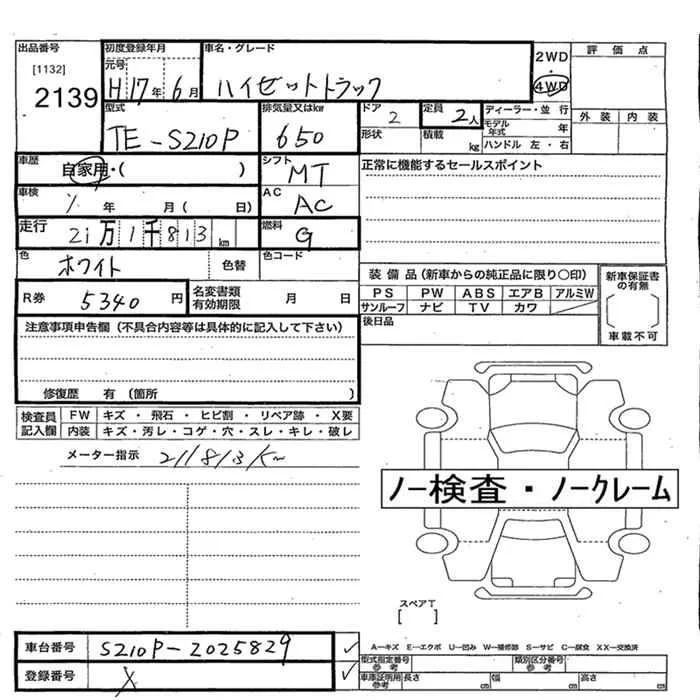 出品番号 初度登録年月 車名・グレード 2WD 評価点
[1132] 元号
2139 H17年6月 ハイゼットトラック 4WD
型式 排気量又はkw ドア 定員 ディーラー・並行 外装 内装
TE-S210P 650 2 2人 モデル年式 年
形状 積載 kg ハンドル 左・右
車歴 自家用・( ) シフト MT 正常に機能するセールスポイント
車検 年 月( 日) AC AC
走行 21万1千813km 燃料 G
色 ホワイト 色替 色コード
装備品(新車からの純正品に限り○印) 新車保証書の有無
R券 5340円 名変書類有効期限 月 日
PS PW ABS エアB アルミW
サンルーフ ナビ TV カワ
[ ]
注意事項申告欄(不具合内容等は具体的に記入して下さい) 後日品 車載不可
修復歴 有(箇所 )
検査員記入欄 FW キズ・飛石・ヒビ割・リペア跡・X要
内装 キズ・汚レ・コゲ・穴・スレ・キレ・破レ
メーター指示 211813Km
ノー検査・ノークレーム
スペアT
[ ]
車台番号 S210P-2025829 ✓ A-キズ E-エクボ U-凹み W-補修跡 S-サビ C-腐食 XX-交換済
型式指定番号参考 類別区分番号参考
登録番号 X ✓ 車庫証明用参考 長さ cm 幅 cm 高さ cm